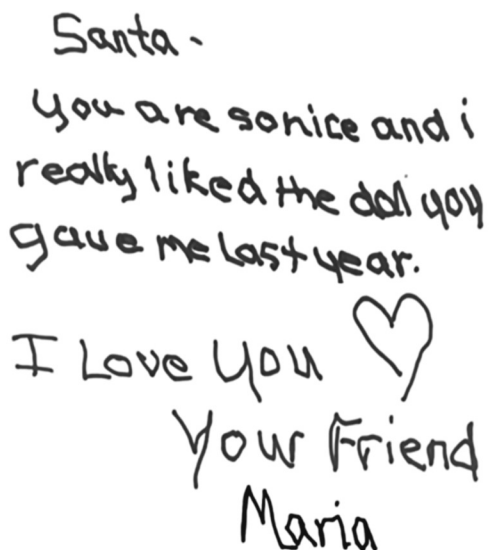 Santa -
you are so nice and i
really liked the doll you
gave me last year.
I Love you
Your Friend
Maria